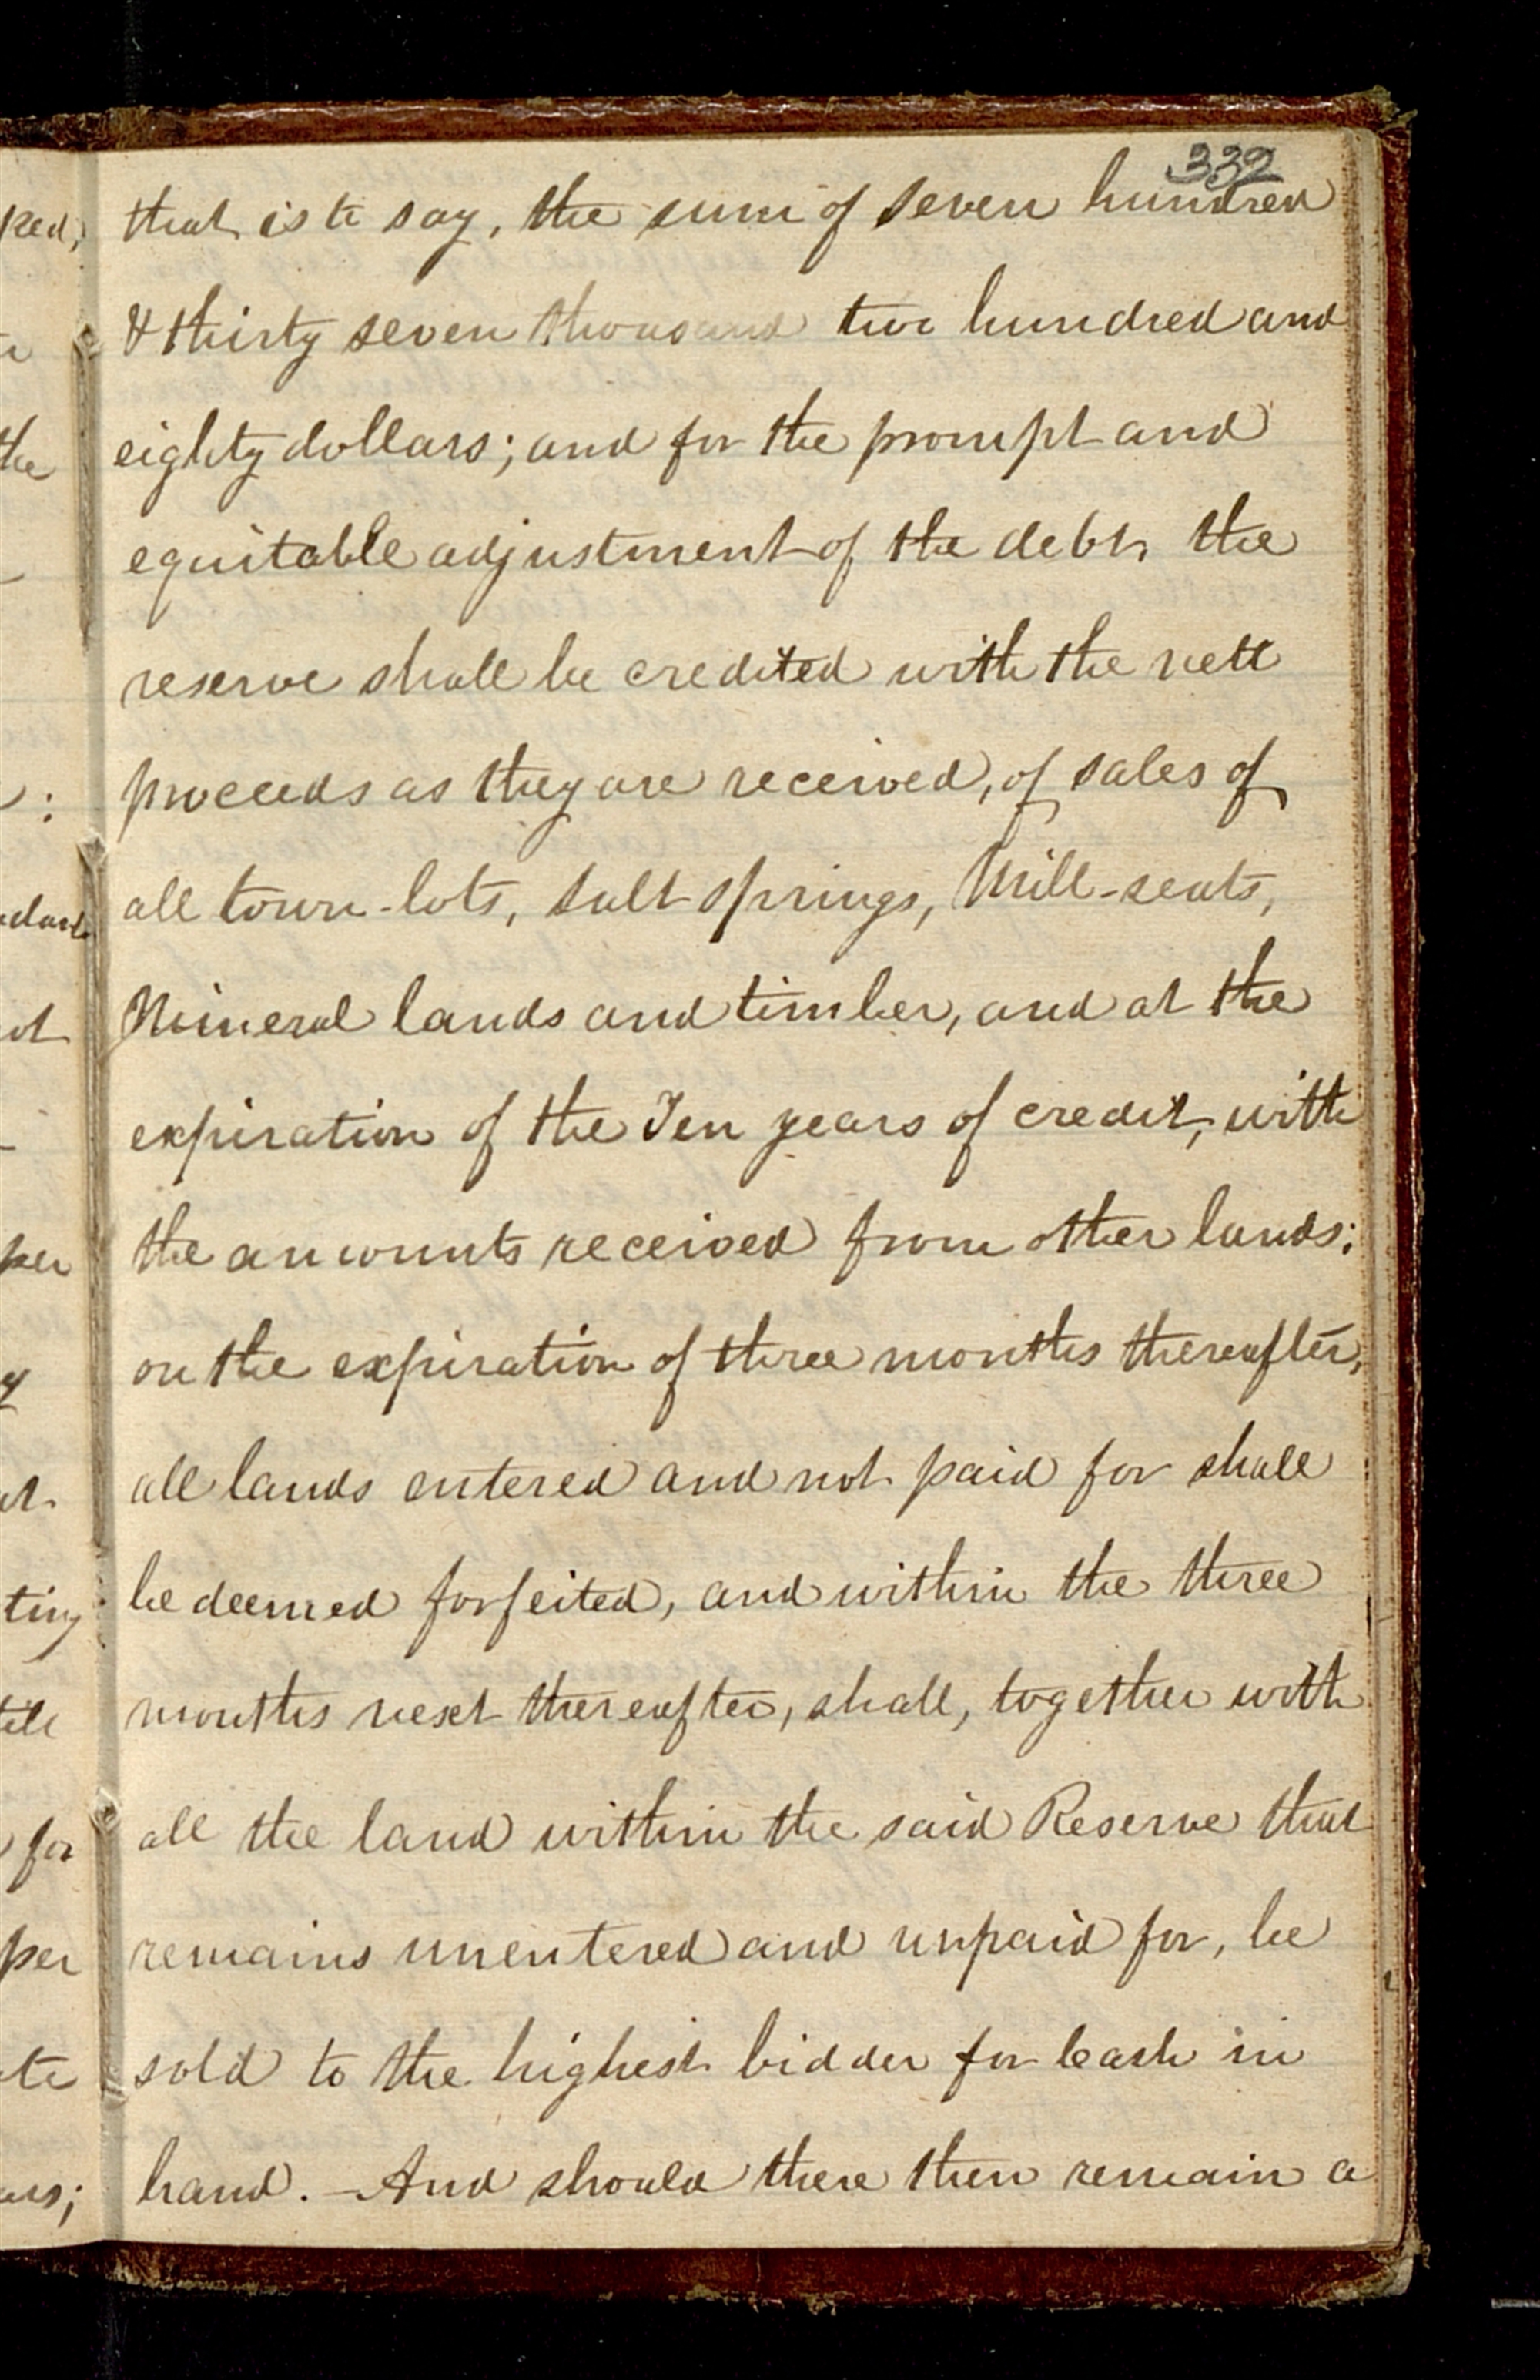 332
that is to say, the sum of seven hundred
& thirty seven thousand two hundred and
eighty dollars; and for the prompt and
equitable adjustment of the debt, the
reserve shall be credited with the nett
proceeds as they are received, of sales of
all town-lots, salt springs, Mill-seats,
Mineral lands and timber, and at the
expiration of the Ten years of credit, with
the amounts received from other lands;
on the expiration of three months thereafter,
all lands entered and not paid for shall
be deemed forfeited, and within the three
months next thereafter, shall, together with
all the land within the said Reserve that
remains unentered and unpaid for, be
sold to the highest bidder for Cash in
hand. - And should there then remain a